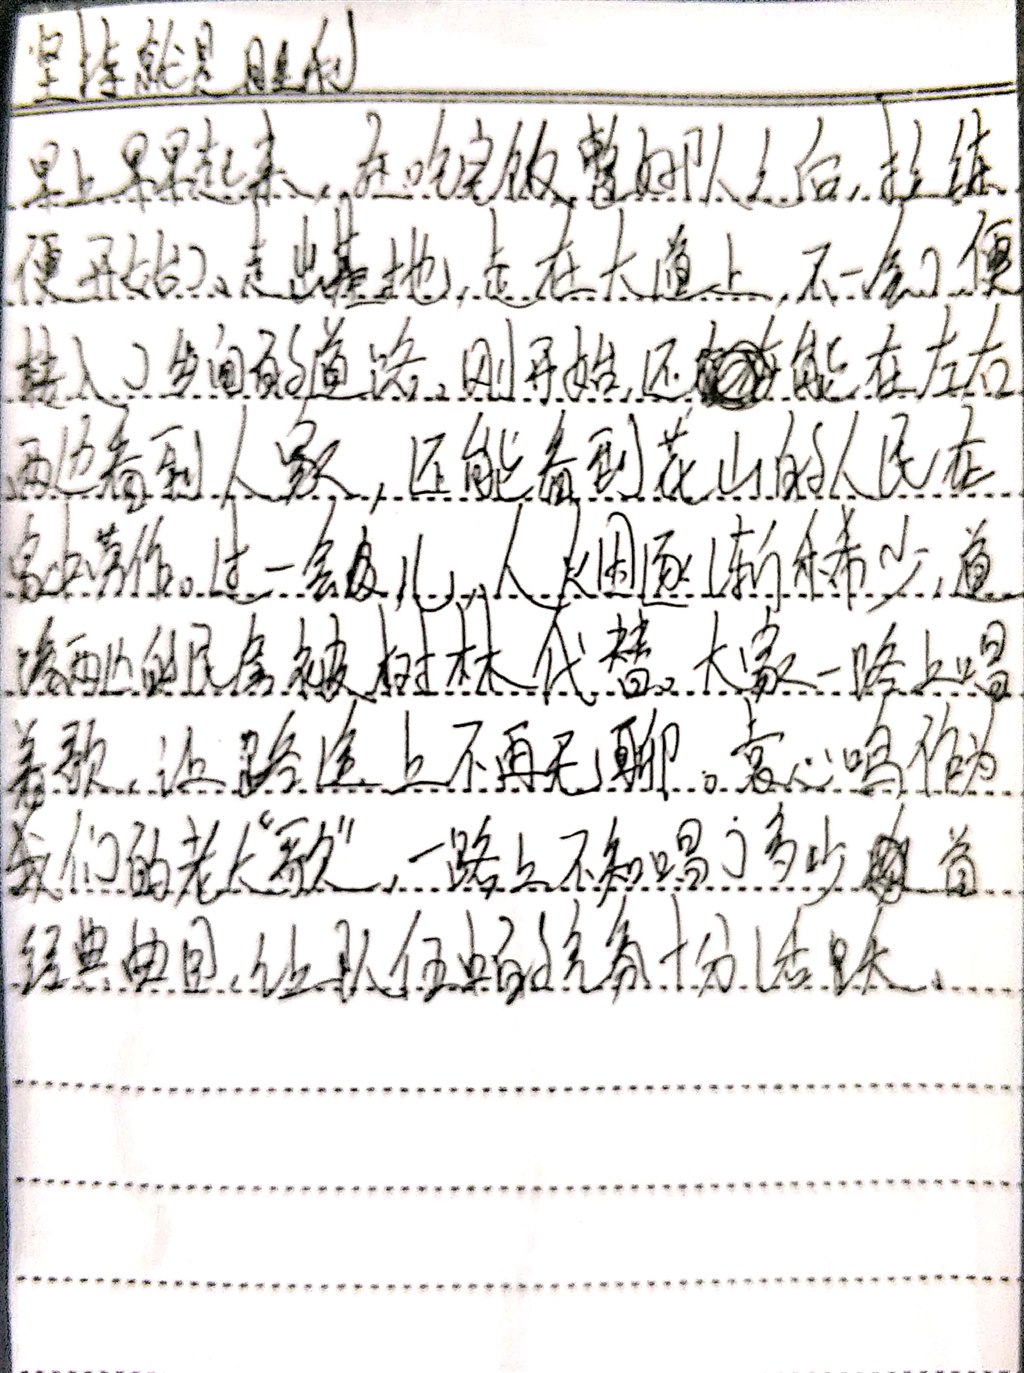 坚持就是胜利
早上早早起来，在吃完饭整好队之后，拉练
便开始了。走出基地，走在大道上，不一会儿便
转入了乡间的道路。刚开始，还能在左右
两边看到人家，还能看到花山的人民在
劳作。过一会儿，人烟逐渐稀少，道
路两边的民房被树林代替。大家一路上唱
着歌，让路途上不再无聊。袁心鸣作为
我们的老大“歌”，一路上不知唱了多少首
经典曲目，让队伍的气氛十分活跃。